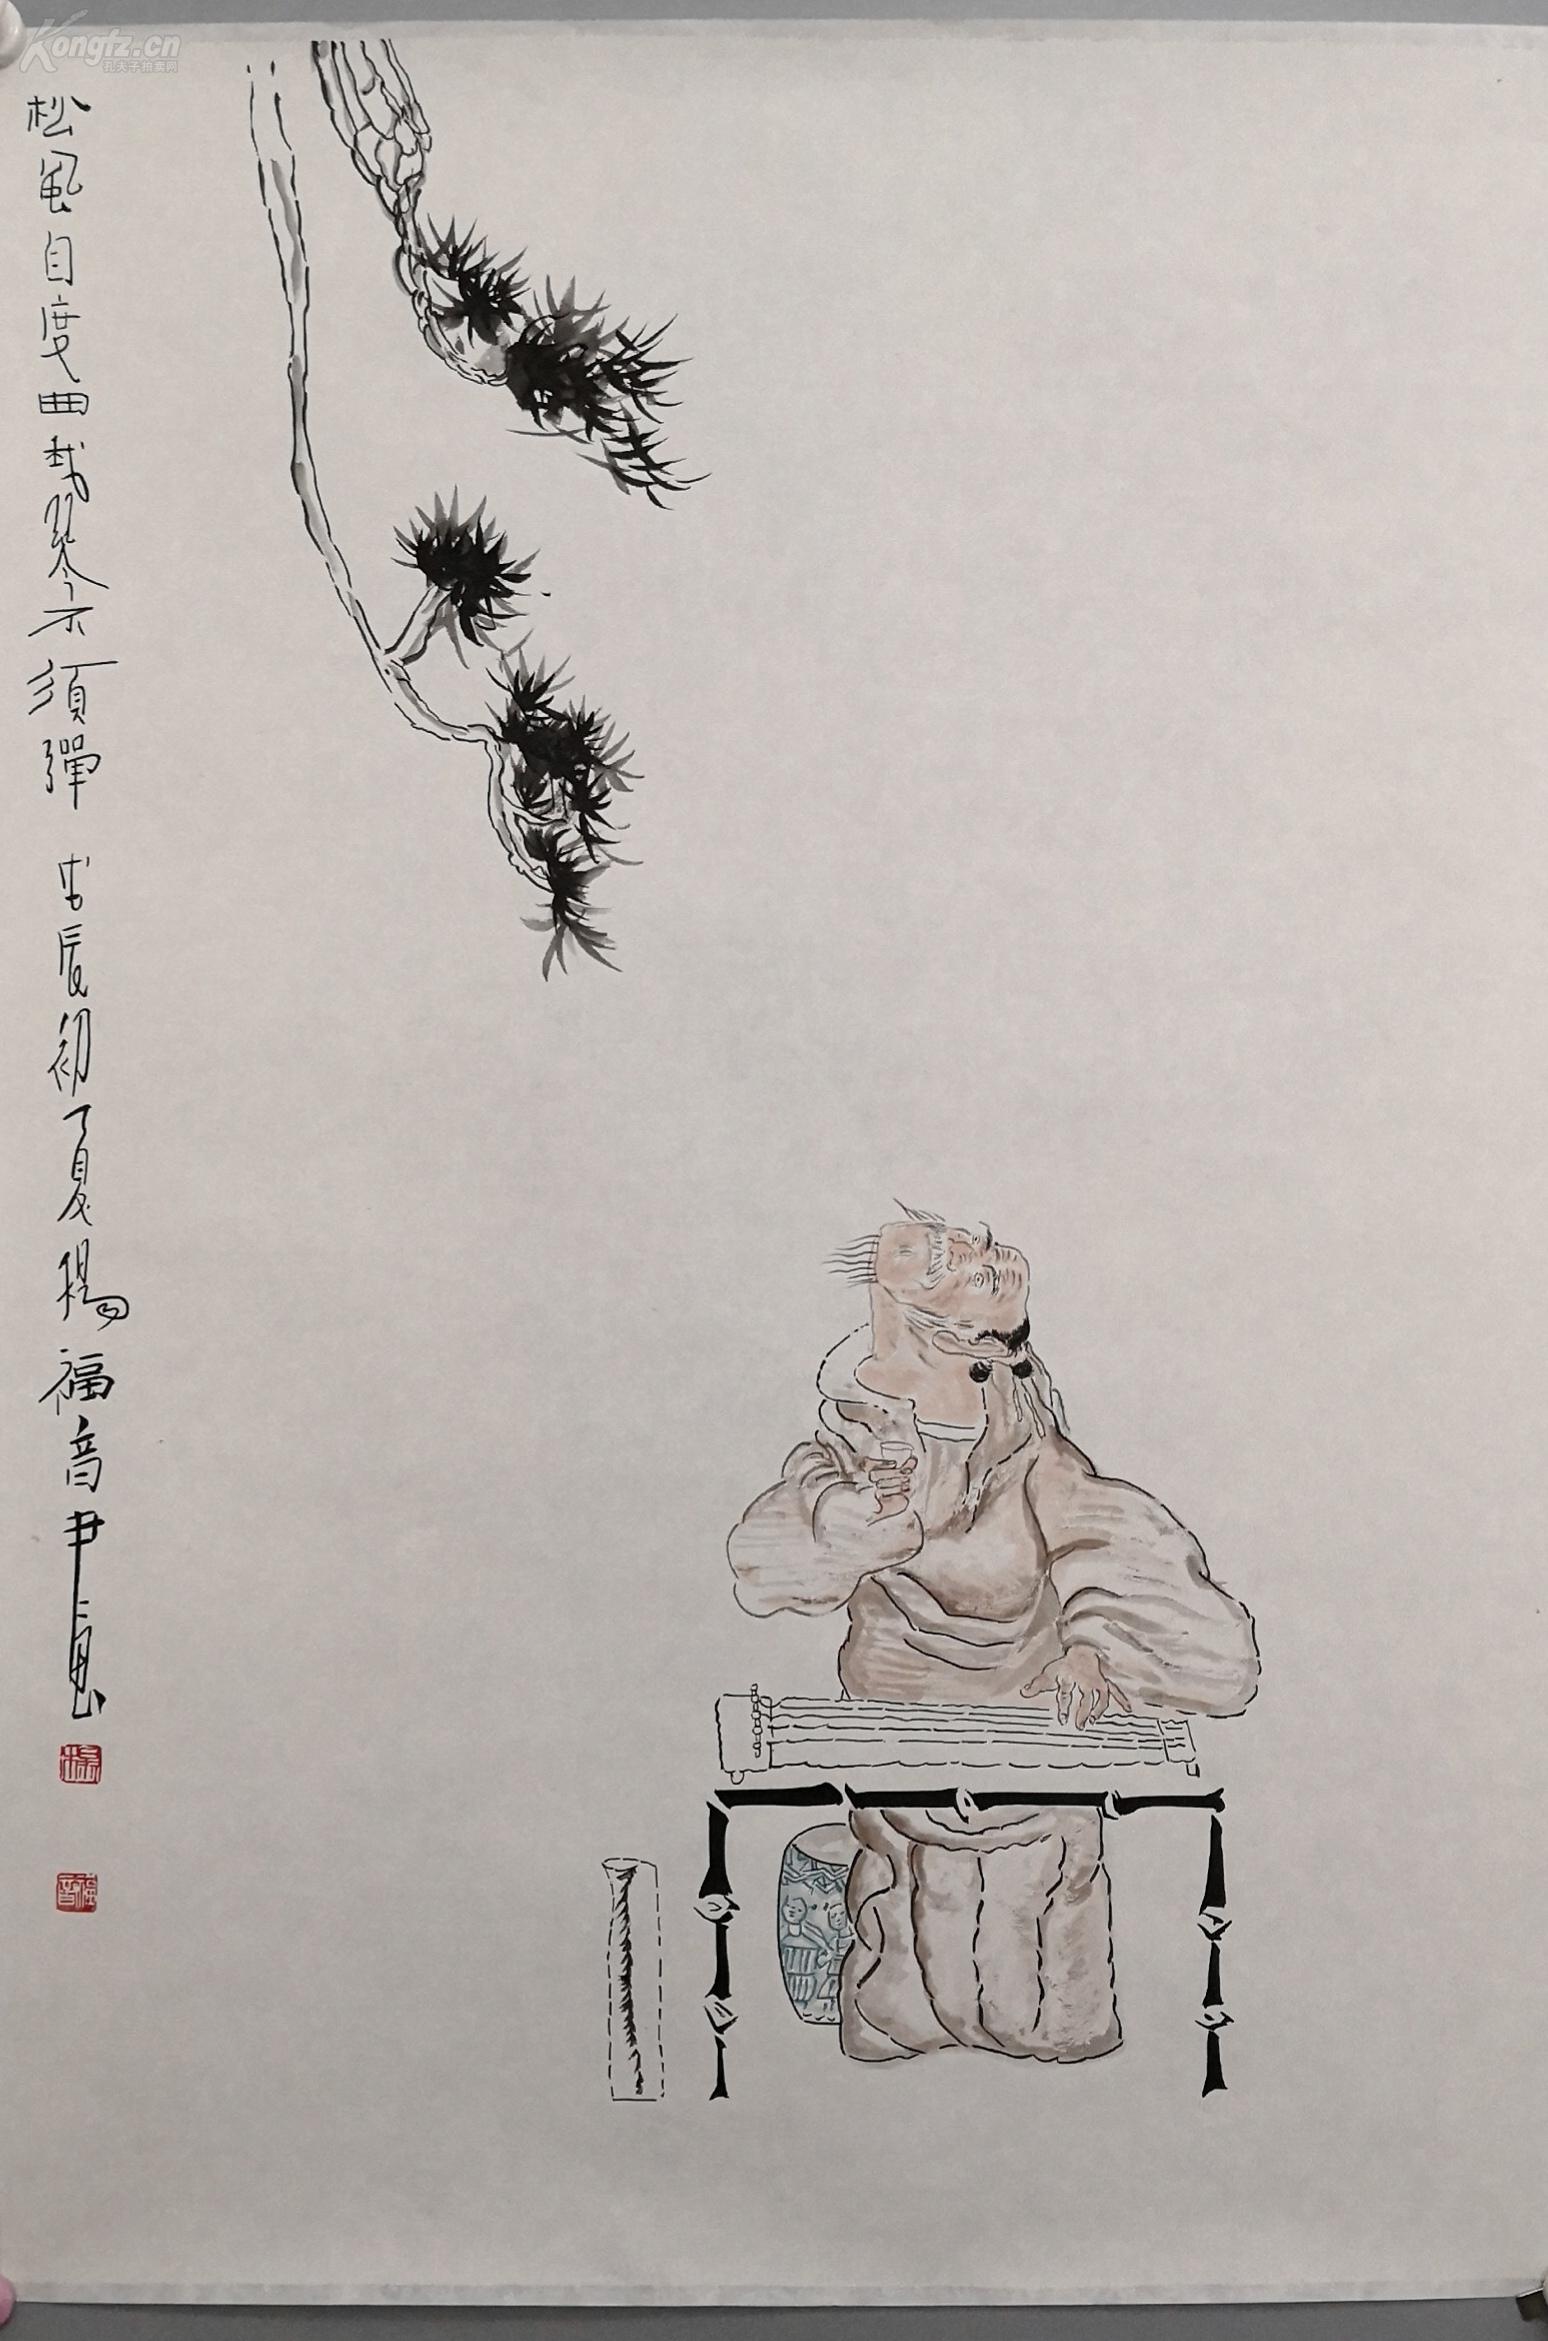 Kongfz.cn
孔夫子拍卖网
松風自度曲我琴不須彈 戊辰初夏楊福音尹
楊
福音